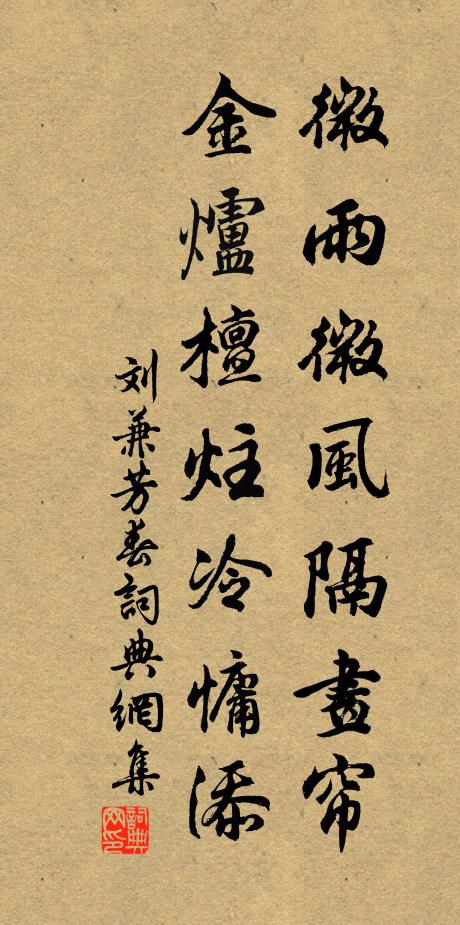 微雨微風隔畫帘
金爐檀炷冷慵添
刘兼芳春詞典網集
詞典网印